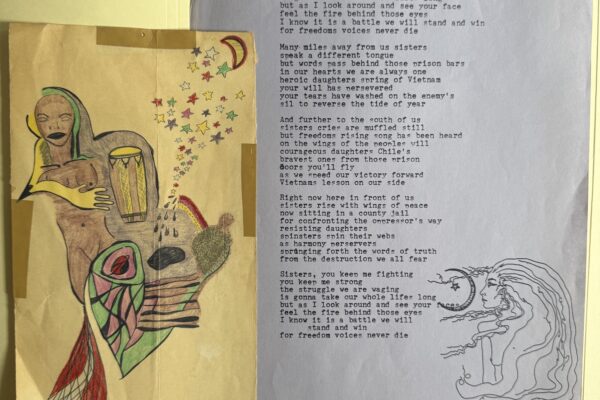 but as I look around and see your face
feel the fire behind those eyes
I know it is a battle we will stand and win
for freedoms voices never die
Many miles away from us sisters
speak a different tongue
but words pass behind those prison bars
in our hearts we are always one
heroic daughters spring of Vietnam
your will has persevered
your tears have washed on the enemy's
sil to reverse the tide of year
And further to the south of us
sisters cries are muffled still
but freedoms rising song has been heard
on the wings of the peoples will
courageous daughters Chile's
bravest ones from those prison
doors you'll fly
as we speed our victory forward
Vietnams lesson on our side
Right now here in front of us
sisters rise with wings of peace
now sitting in a county jail
for confronting the oppressor's way
resisting daughters
spinsters spin their webs
as harmony perservers
springing forth the words of truth
from the destruction we all fear
Sisters, you keep me fighting
you keep me strong
the struggle we are waging
is gonna take our whole lifes long
but as I look around and see your
feel the fire behind those eyes
I know it is a battle we will
stand and win
for freedom voices never die